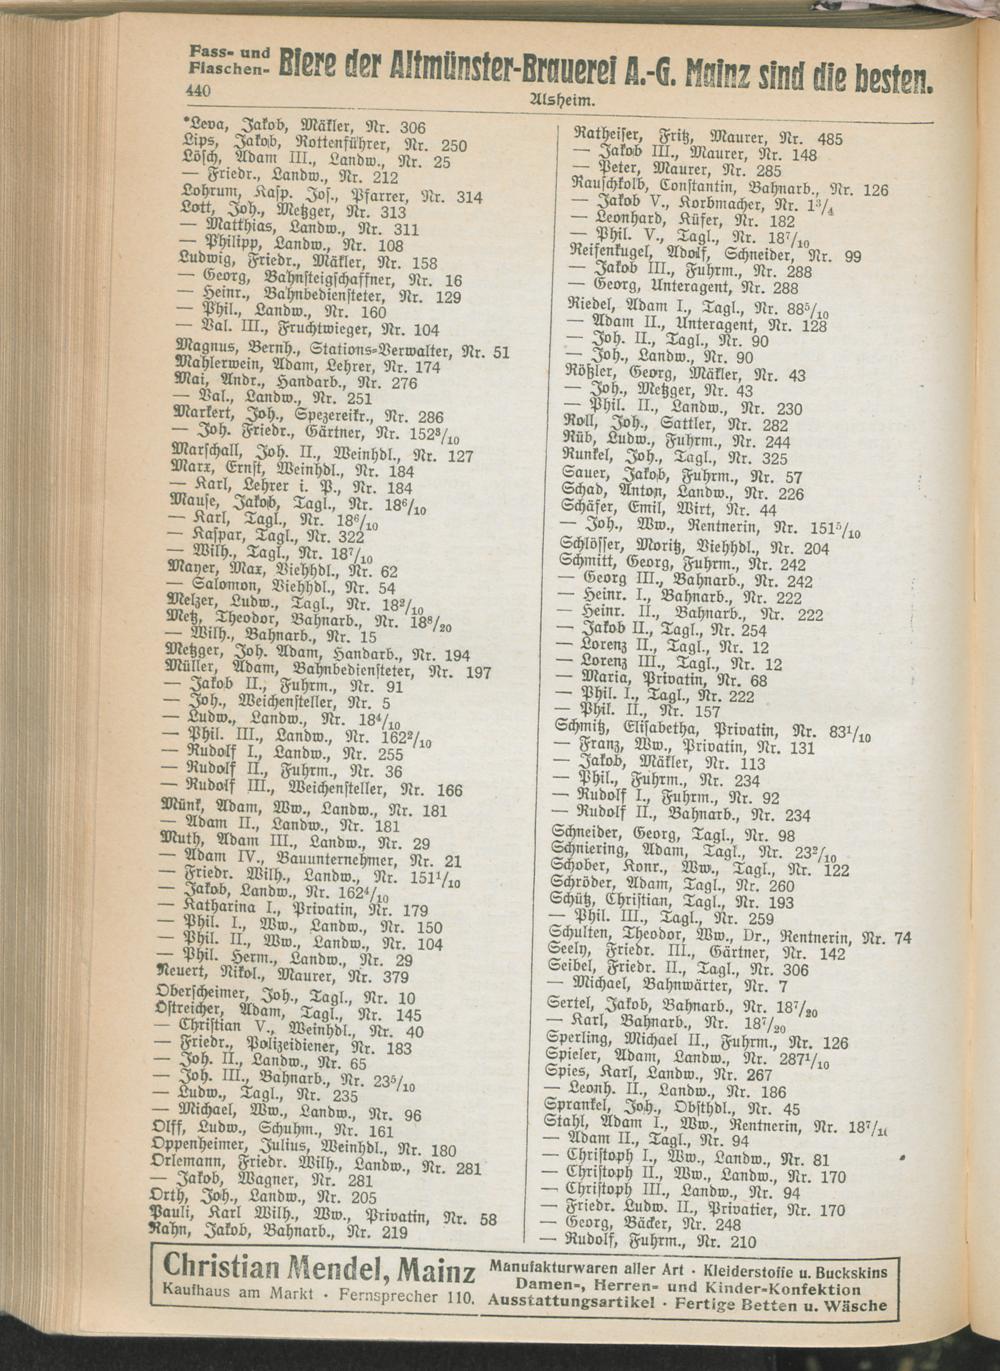 Fass- und Flaschen- Biere der Altmünster-Brauerei A.-G. Mainz sind die besten.
440
Alsheim.
*Leva, Jakob, Mäkler, Nr. 306
Lips, Jakob, Rottenführer, Nr. 250
Lösch, Adam III., Landw., Nr. 25
— Friedr., Landw., Nr. 212
Lohrum, Kasp. Jos., Pfarrer, Nr. 314
Lott, Joh., Metzger, Nr. 313
— Matthias, Landw., Nr. 311
— Philipp, Landw., Nr. 108
Ludwig, Friedr., Mäkler, Nr. 158
— Georg, Bahnsteigschaffner, Nr. 16
— Heinr., Bahnbediensteter, Nr. 129
— Phil., Landw., Nr. 160
— Val. III., Fruchtwieger, Nr. 104
Magnus, Bernh., Stations-Verwalter, Nr. 51
Mahlerwein, Adam, Lehrer, Nr. 174
Mai, Andr., Handarb., Nr. 276
— Val., Landw., Nr. 251
Markert, Joh., Spezereikr., Nr. 286
— Joh. Friedr., Gärtner, Nr. 152⁸/₁₀
Marschall, Joh. II., Weinhdl., Nr. 127
Marx, Ernst, Weinhdl., Nr. 184
— Karl, Lehrer i. P., Nr. 184
Mause, Jakob, Tagl., Nr. 18⁶/₁₀
— Karl, Tagl., Nr. 18⁶/₁₀
— Kaspar, Tagl., Nr. 322
— Wilh., Tagl., Nr. 18⁷/₁₀
Mayer, Max, Viehhdl., Nr. 62
— Salomon, Viehhdl., Nr. 54
Melzer, Ludw., Tagl., Nr. 18²/₁₀
Metz, Theodor, Bahnarb., Nr. 18⁸/₂₀
— Wilh., Bahnarb., Nr. 15
Metzger, Joh. Adam, Handarb., Nr. 194
Müller, Adam, Bahnbediensteter, Nr. 197
— Jakob II., Fuhrm., Nr. 91
— Joh., Weichensteller, Nr. 5
— Ludw., Landw., Nr. 18⁴/₁₀
— Phil. III., Landw., Nr. 162²/₁₀
— Rudolf I., Landw., Nr. 255
— Rudolf II., Fuhrm., Nr. 36
— Rudolf III., Weichensteller, Nr. 166
Münk, Adam, Ww., Landw., Nr. 181
— Adam II., Landw., Nr. 181
Muth, Adam III., Landw., Nr. 29
— Adam IV., Bauunternehmer, Nr. 21
— Friedr. Wilh., Landw., Nr. 151¹/₁₀
— Jakob, Landw., Nr. 162⁴/₁₀
— Katharina I., Privatin, Nr. 179
— Phil. I., Ww., Landw., Nr. 150
— Phil. II., Ww., Landw., Nr. 104
— Phil. Herm., Landw., Nr. 29
Neuert, Nikol., Maurer, Nr. 379
Oberscheimer, Joh., Tagl., Nr. 10
Östreicher, Adam, Tagl., Nr. 145
— Christian V., Weinhdl., Nr. 40
— Friedr., Polizeidiener, Nr. 183
— Joh. II., Landw., Nr. 65
— Joh. III., Bahnarb., Nr. 23⁵/₁₀
— Ludw., Tagl., Nr. 235
— Michael, Ww., Landw., Nr. 96
Olff, Ludw., Schuhm., Nr. 161
Oppenheimer, Julius, Weinhdl., Nr. 180
Orlemann, Friedr. Wilh., Landw., Nr. 281
— Jakob, Wagner, Nr. 281
Orth, Joh., Landw., Nr. 205
Pauli, Karl Wilh., Ww., Privatin, Nr. 58
Rahn, Jakob, Bahnarb., Nr. 219
Ratheiser, Fritz, Maurer, Nr. 485
— Jakob III., Maurer, Nr. 148
— Peter, Maurer, Nr. 285
Rauschkolb, Constantin, Bahnarb., Nr. 126
— Jakob V., Korbmacher, Nr. 1³/₄
— Leonhard, Küfer, Nr. 182
— Phil. V., Tagl., Nr. 18⁷/₁₀
Reifenkugel, Adolf, Schneider, Nr. 99
— Jakob III., Fuhrm., Nr. 288
— Georg, Unteragent, Nr. 288
Riedel, Adam I., Tagl., Nr. 88⁵/₁₀
— Adam II., Unteragent, Nr. 128
— Joh. II., Tagl., Nr. 90
— Joh., Landw., Nr. 90
Rößler, Georg, Mäkler, Nr. 43
— Joh., Metzger, Nr. 43
— Phil. II., Landw., Nr. 230
Roll, Joh., Sattler, Nr. 282
Rüb, Ludw., Fuhrm., Nr. 244
Runkel, Joh., Tagl., Nr. 325
Sauer, Jakob, Fuhrm., Nr. 57
Schad, Anton, Landw., Nr. 226
Schäfer, Emil, Wirt, Nr. 44
— Joh., Ww., Rentnerin, Nr. 151⁵/₁₀
Schlösser, Moritz, Viehhdl., Nr. 204
Schmitt, Georg, Fuhrm., Nr. 242
— Georg III., Bahnarb., Nr. 242
— Heinr. I., Bahnarb., Nr. 222
— Heinr. II., Bahnarb., Nr. 222
— Jakob II., Tagl., Nr. 254
— Lorenz II., Tagl., Nr. 12
— Lorenz III., Tagl., Nr. 12
— Maria, Privatin, Nr. 68
— Phil. I., Tagl., Nr. 222
— Phil. II., Nr. 157
Schmitz, Elisabetha, Privatin, Nr. 83¹/₁₀
— Franz, Ww., Privatin, Nr. 131
— Jakob, Mäkler, Nr. 113
— Phil., Fuhrm., Nr. 234
— Rudolf I., Fuhrm., Nr. 92
— Rudolf II., Bahnarb., Nr. 234
Schneider, Georg, Tagl., Nr. 98
Schniering, Adam, Tagl., Nr. 23²/₁₀
Schober, Konr., Ww., Tagl., Nr. 122
Schröder, Adam, Tagl., Nr. 260
Schütz, Christian, Tagl., Nr. 193
— Phil. III., Tagl., Nr. 259
Schulten, Theodor, Ww., Dr., Rentnerin, Nr. 74
Seely, Friedr. III., Gärtner, Nr. 142
Seibel, Friedr. II., Tagl., Nr. 306
— Michael, Bahnwärter, Nr. 7
Sertel, Jakob, Bahnarb., Nr. 18⁷/₂₀
— Karl, Bahnarb., Nr. 18⁷/₂₀
Sperling, Michael II., Fuhrm., Nr. 126
Spieler, Adam, Landw., Nr. 287¹/₁₀
Spies, Karl, Landw., Nr. 267
— Leonh. II., Landw., Nr. 186
Sprankel, Joh., Obsthdl., Nr. 45
Stahl, Adam I., Ww., Rentnerin, Nr.
— Adam II., Tagl., Nr. 94
— Christoph I., Ww., Landw., Nr. 81
— Christoph II., Ww., Landw., Nr. 170
— Christoph III., Landw., Nr. 94
— Friedr. Ludw. II., Privatier, Nr. 170
— Georg, Bäcker, Nr. 248
— Rudolf, Fuhrm., Nr. 210
Christian Mendel, Mainz
Kaufhaus am Markt · Fernsprecher 110.
Manufakturwaren aller Art · Kleiderstoffe u. Buckskins
Damen-, Herren- und Kinder-Konfektion
Ausstattungsartikel · Fertige Betten u. Wäsche